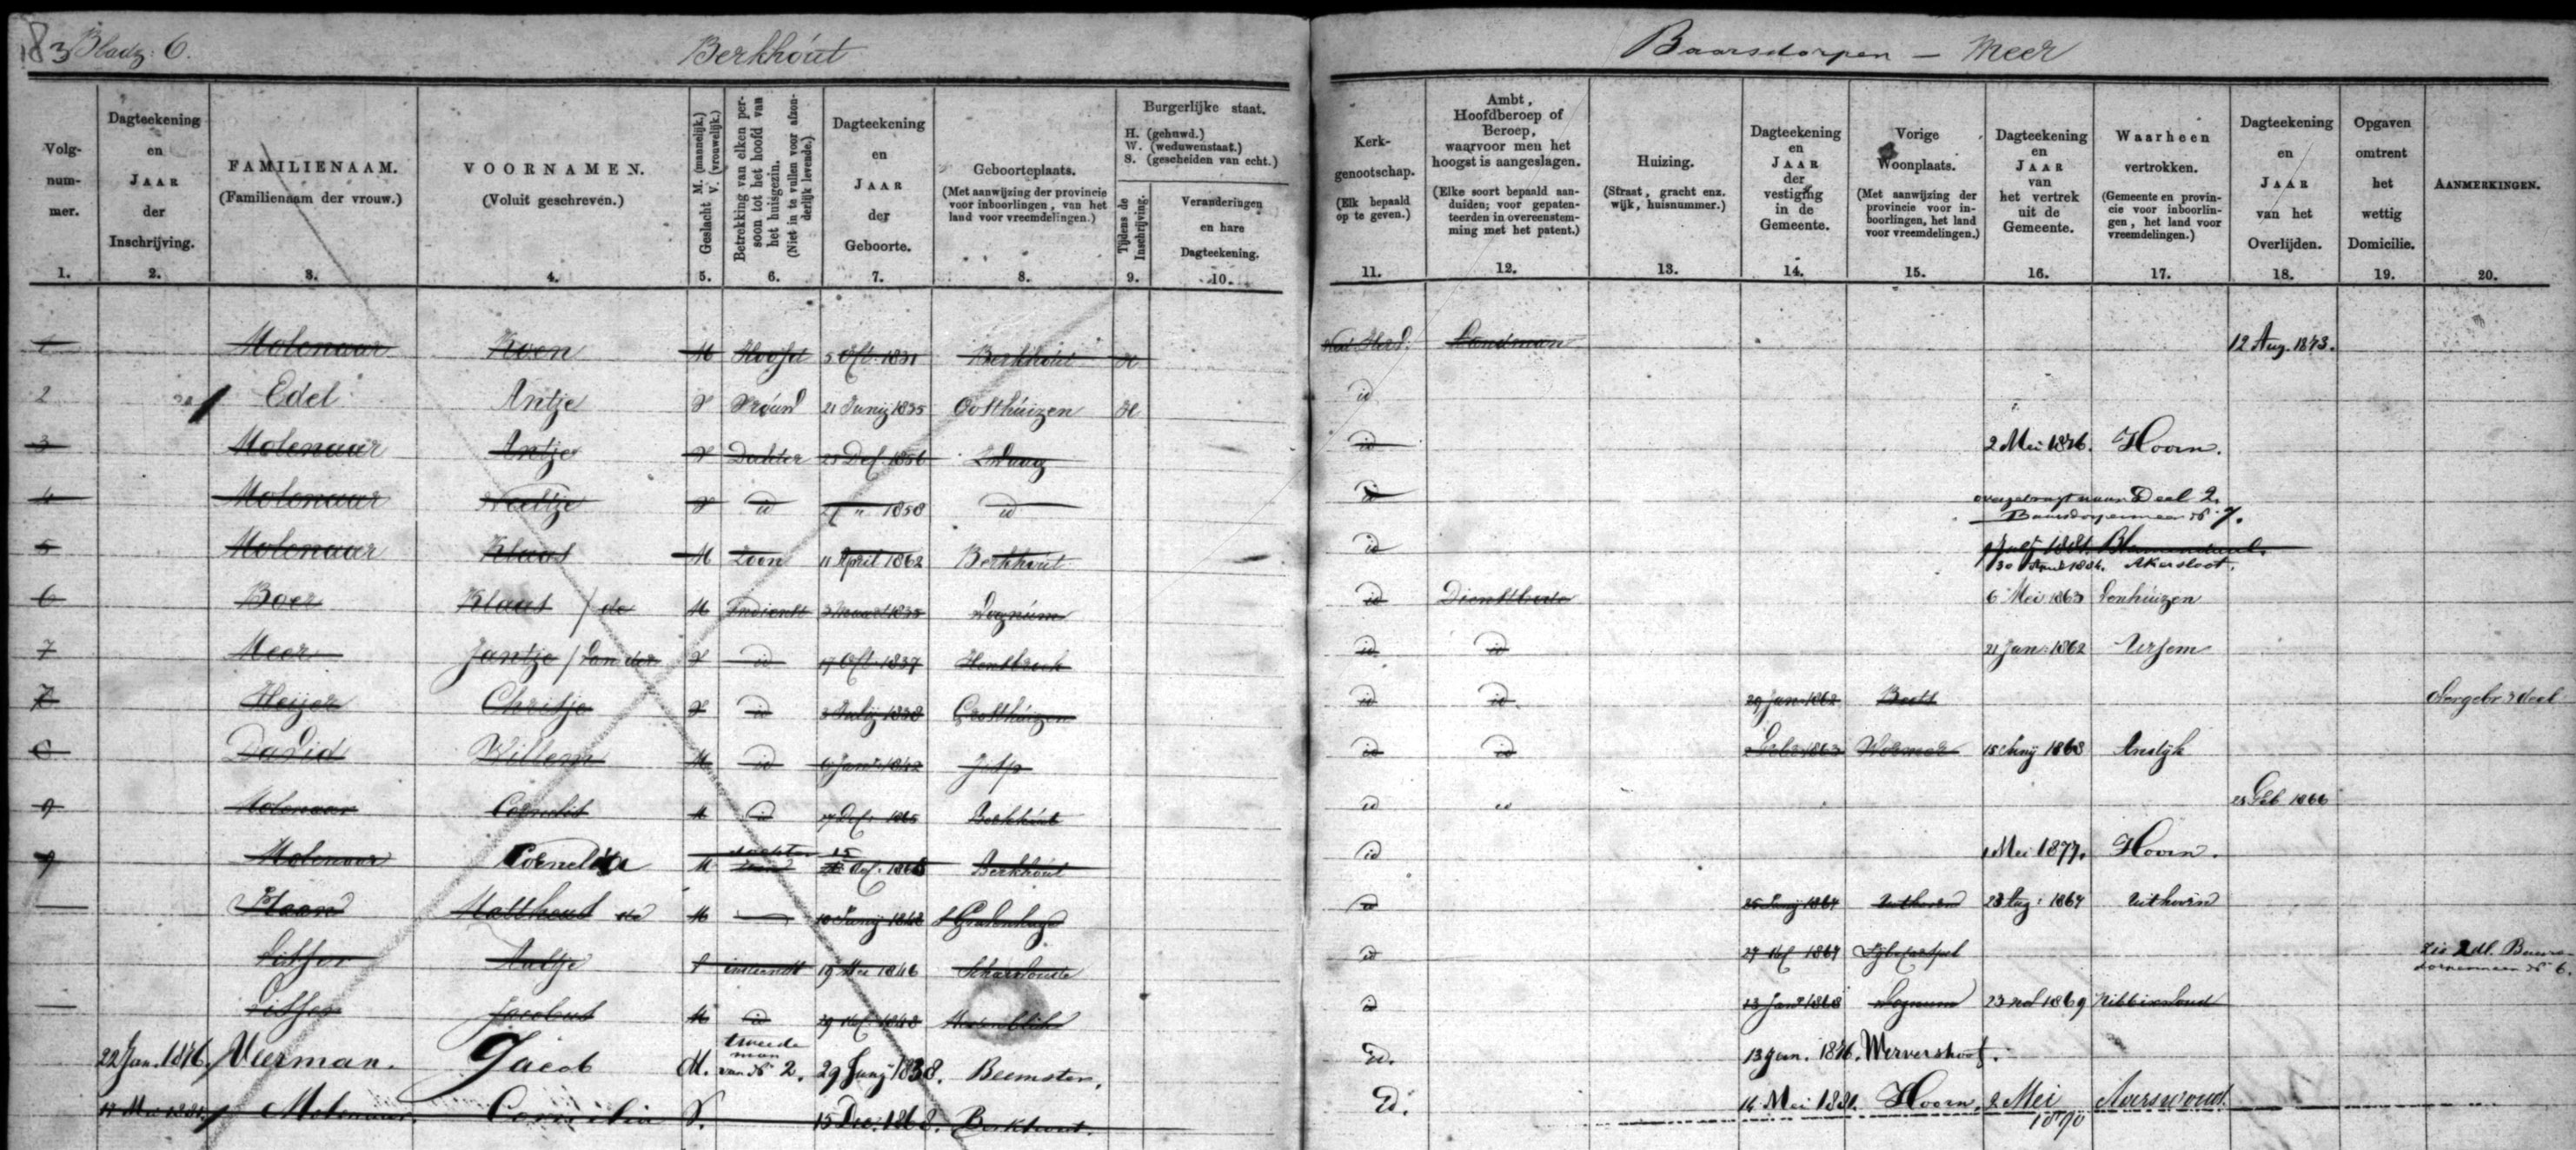 183 Bladz: 6. Berkhout Baarsdorpen — Meer
Volgnummer. 1.
Dagteekening en JAAR der Inschrijving. 2.
FAMILIENAAM. (Familienaam der vrouw.) 3.
VOORNAMEN. (Voluit geschreven.) 4.
Geslacht M. (mannelijk.) V. (vrouwelijk.) 5.
Betrekking van elken persoon tot het hoofd van het huisgezin. (Niet in te vullen voor afzonderlijk levende.) 6.
Dagteekening en JAAR der Geboorte. 7.
Geboorteplaats. (Met aanwijzing der provincie voor inboorlingen, van het land voor vreemdelingen.) 8.
Burgerlijke staat. H. (gehuwd.) W. (weduwenstaat.) S. (gescheiden van echt.)
Tijdens de Inschrijving. 9.
Veranderingen en hare Dagteekening. 10.
Kerkgenootschap. (Elk bepaald op te geven.) 11.
Ambt, Hoofdberoep of Beroep, waarvoor men het hoogst is aangeslagen. (Elke soort bepaald aanduiden; voor gepatenteerden in overeenstemming met het patent.) 12.
Huizing. (Straat, gracht enz. wijk, huisnummer.) 13.
Dagteekening en JAAR der vestiging in de Gemeente. 14.
Vorige Woonplaats. (Met aanwijzing der provincie voor inboorlingen, het land voor vreemdelingen.) 15.
Dagteekening en JAAR van het vertrek uit de Gemeente. 16.
Waarheen vertrokken. (Gemeente en provincie voor inboorlingen, het land voor vreemdelingen.) 17.
Dagteekening en JAAR van het Overlijden. 18.
Opgaven omtrent het wettig Domicilie. 19.
AANMERKINGEN. 20.
1 Molenaar Koen M Hoofd 5 Oct. 1831 Berkhout H Ned Herv. Landman 12 Aug. 1873.
2 Edel Antje V Vrouw 21 Junij 1835 Oosthuizen H id
3 Molenaar Antje V Dochter 25 Dec. 1856 Zwaag id 2 Mei 1876. Hoorn.
4 Molenaar Neeltje V id 1858 id id Deel 2. Baarsdorpermeer No 7.
5 Molenaar Klaas M Zoon 11 April 1862 Berkhout id 1881. Bloemendaal. 30 April 1884. Akersloot.
6 Boer Klaas / de M Indienst Maart 1835 Wognum id Dienstbode 6 Mei 1863 Venhuizen
7 Meer Jantje / Van der V id 17 Oct. 1837 Hensbroek id id 21 Jan. 1862 Ursem
Heijer Christje V id 3 Julij 1838 Oosthuizen id id 29 Jan. 1862 Beets
8 David Willem M id 6 Jan. 1842 Jisp id id 1863 Wormer 15 1863 Andijk
9 Molenaar Cornelis M id 17 Dec. 1865 Berkhout id id 28 Feb 1866
9 Molenaar Cornelia M dochter 15 Dec. 1868 Berkhout id 1 Mei 1877. Hoorn.
Haan Mattheus de M 10 Junij 1848 s Gravenhage id 25 Junij 1864 Uithoorn 23 Aug. 1864 Uithoorn
Visser Aaltje V indienst 19 Mei 1846 Scharwoude id 27 1864 Sijbecarspel Zie 2 dl. Baarsdorpermeer No 6.
Visser Jacobus M id 29 1848 Medemblik id 13 Jan. 1868 Wognum 23 1869 Nibbixwoud
22 Jan. 1876. Veerman. Jacob M. tweede man van No 2. 29 Junij 1838. Beemster. Id. 13 Jan. 1876. Wervershoof.
17 Mei 1881 Molenaar. Cornelia V. 15 Dec. 1868. Berkhout. Id. 14 Mei 1881. Hoorn. 2 Mei 1890 Aartswoud.